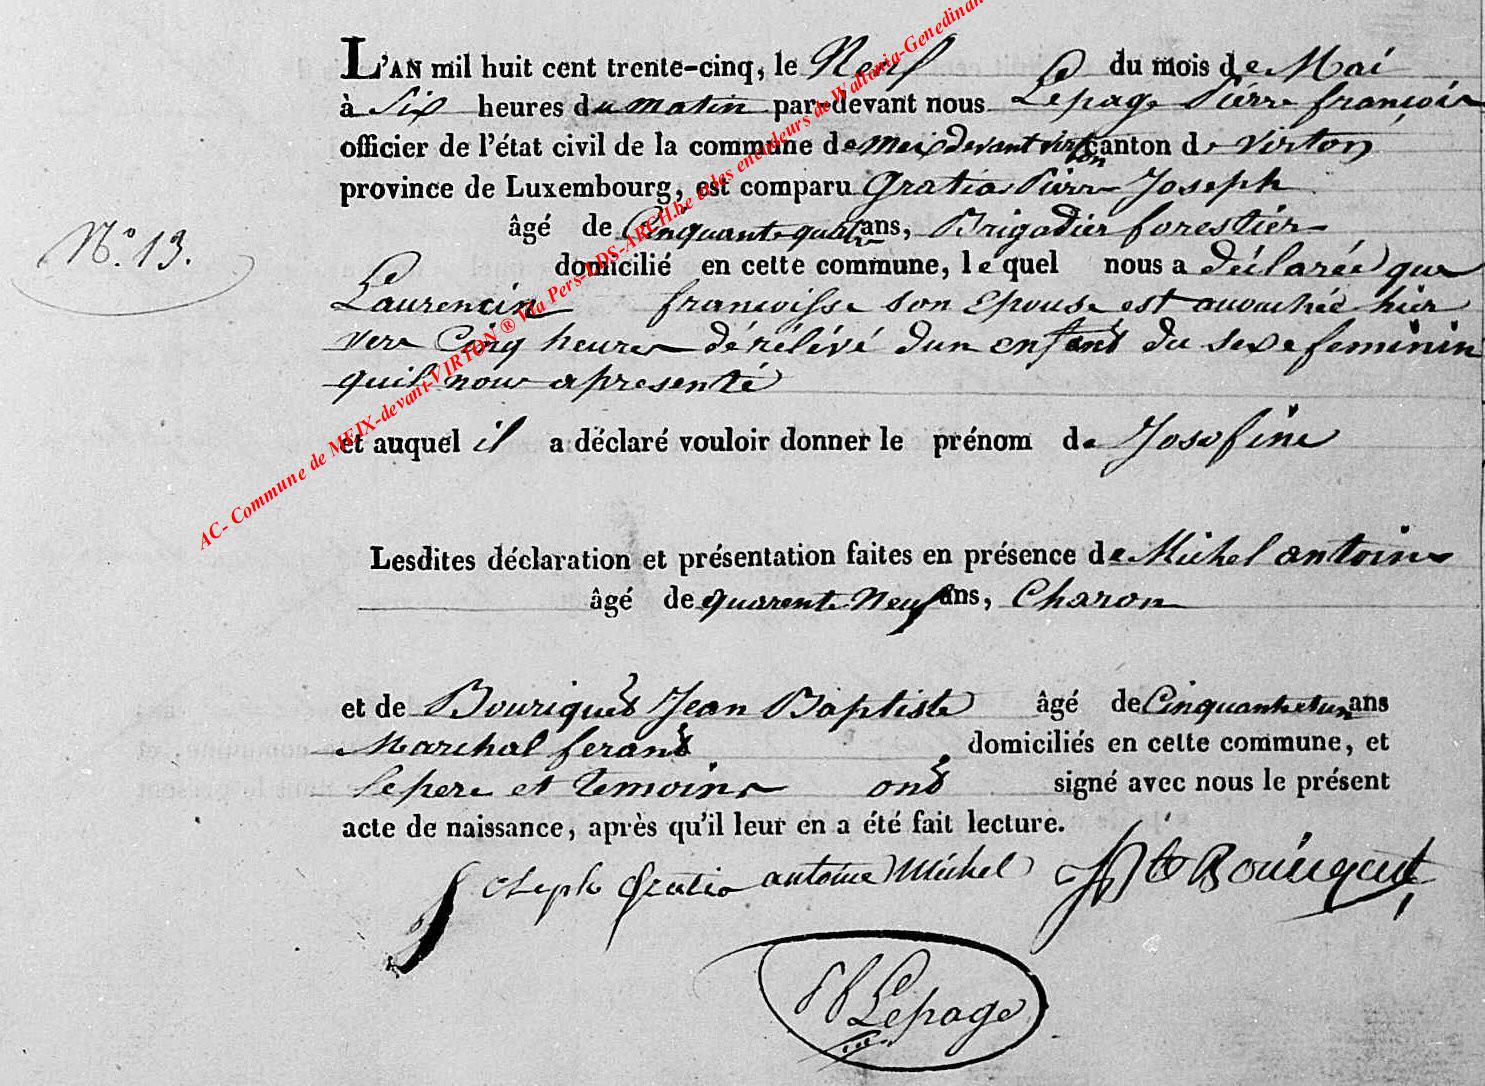 L'AN mil huit cent trente-cinq, le Neuf du mois de Mai
à Six heures du matin par-devant nous Lepage Pierre françois
officier de l'état civil de la commune de Meix devant virton canton de Virton
province de Luxembourg, est comparu Gratia Pierre Joseph
âgé de Cinquante quatre ans, Brigadier forestier
N.º 13.
domicilié en cette commune, lequel nous a déclarée que
Laurencin francoisse son Epouse est accouchée hier
vers Cinq heures dérélivé dun enfant du sexe feminin
quil nous a presenté
et auquel il a déclaré vouloir donner le prénom de Josefine
Lesdites déclaration et présentation faites en présence de Michel antoine
âgé de quarente Neuf ans, Charon
et de Bouriquet Jean Baptiste âgé de Cinquante et un ans
Marchal ferant domiciliés en cette commune, et
le pere et temoins ont signé avec nous le présent
acte de naissance, après qu'il leur en a été fait lecture.
Joseph Gratia antoine Michel JBte Bouriquet
Lepage
AC- Commune de MEIX-devant-VIRTON ® Via Pers-LDS-ARCH.be et les encodeurs de Wallonia-Genedinan